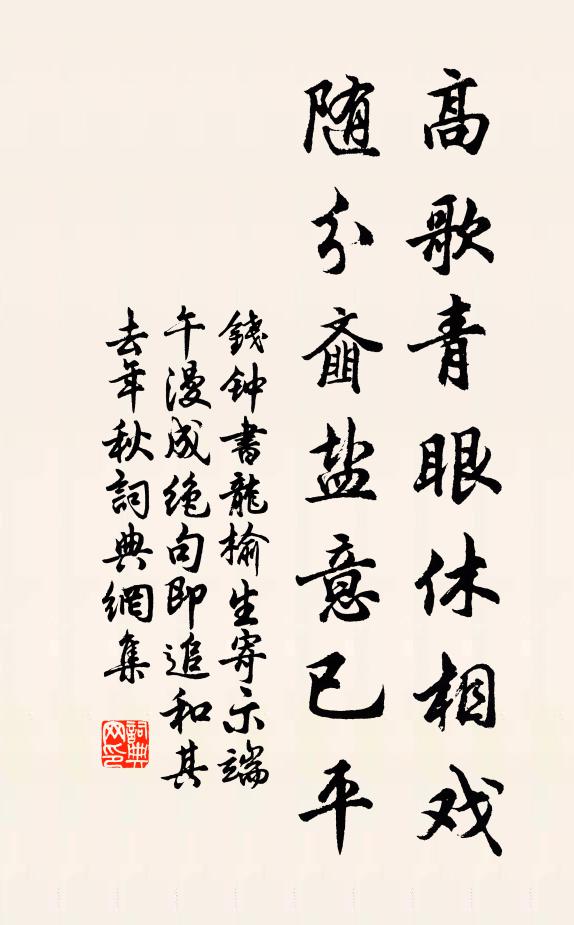 高歌青眼休相戏
随分齑盐意已平
錢钟書龍榆生寄示端
午漫成绝句即追和其
去年秋詞典網集
詞典
网印